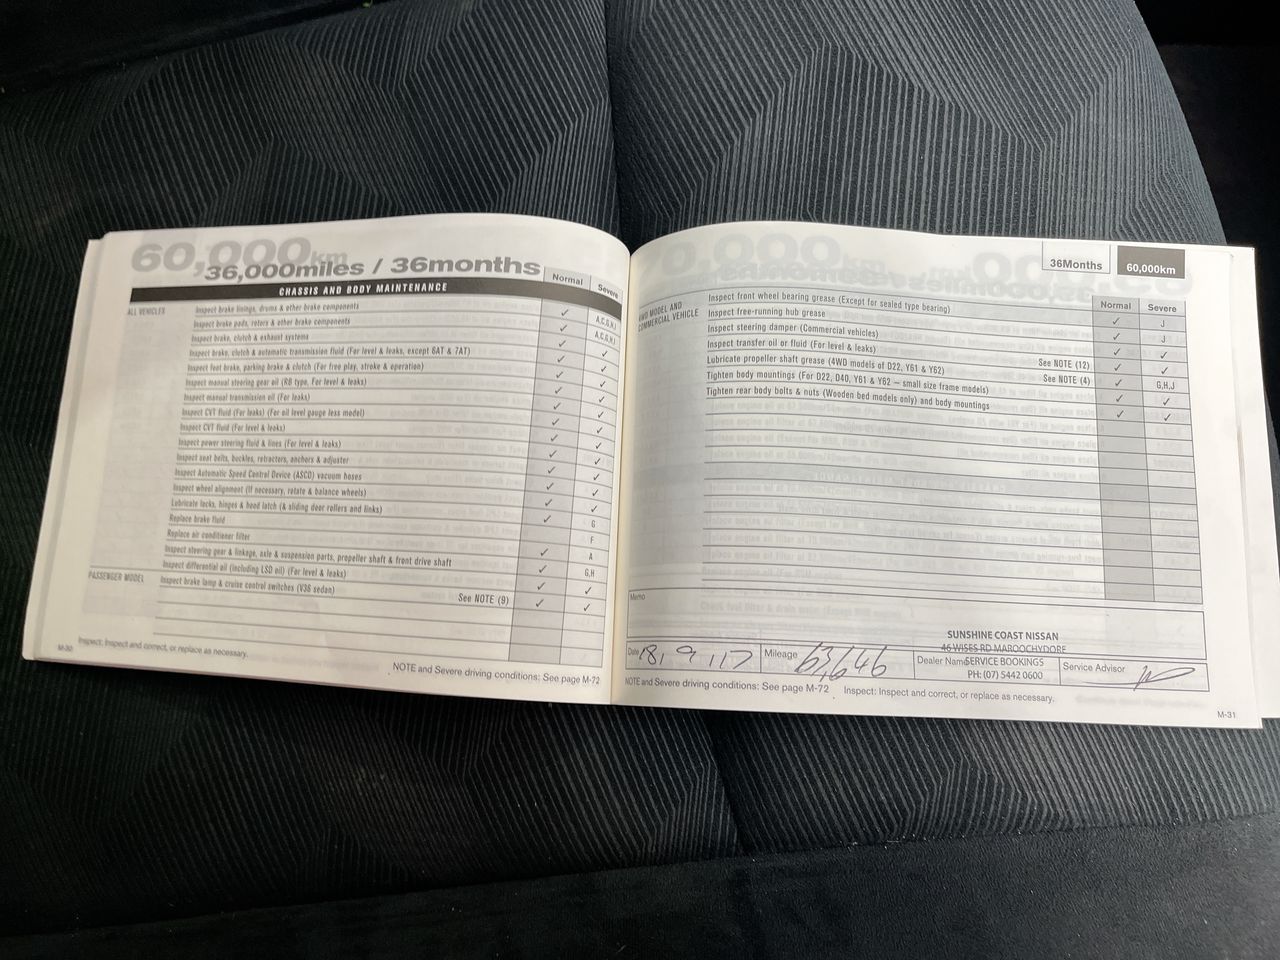 60,000km
36,000miles / 36months
CHASSIS AND BODY MAINTENANCE
Normal
Severe
ALL VEHICLES
Inspect brake linings, drums & other brake components ✓ A,C,G,H,I
Inspect brake pads, rotors & other brake components ✓ A,C,G,H,I
Inspect brake, clutch & exhaust systems ✓ ✓
Inspect brake, clutch & automatic transmission fluid (For level & leaks, except 6AT & 7AT) ✓ ✓
Inspect foot brake, parking brake & clutch (For free play, stroke & operation) ✓ ✓
Inspect manual steering gear oil (RB type, For level & leaks) ✓ ✓
Inspect manual transmission oil (For leaks) ✓ ✓
Inspect CVT fluid (For leaks) (For oil level gauge less model) ✓ ✓
Inspect CVT fluid (For level & leaks) ✓ ✓
Inspect power steering fluid & lines (For level & leaks) ✓ ✓
Inspect seat belts, buckles, retractors, anchors & adjuster ✓ ✓
Inspect Automatic Speed Control Device (ASCD) vacuum hoses ✓ ✓
Inspect wheel alignment (If necessary, rotate & balance wheels) ✓ ✓
Lubricate locks, hinges & hood latch (& sliding door rollers and links) ✓ G
Replace brake fluid F
Replace air conditioner filter ✓ A
Inspect steering gear & linkage, axle & suspension parts, propeller shaft & front drive shaft ✓ G,H
Inspect differential oil (including LSD oil) (For level & leaks) ✓ ✓
PASSENGER MODEL
Inspect brake lamp & cruise control switches (V36 sedan) See NOTE (9) ✓ ✓
M-30
Inspect: Inspect and correct, or replace as necessary.
NOTE and Severe driving conditions: See page M-72
36Months
60,000km
Normal
Severe
4WD MODEL AND
COMMERCIAL VEHICLE
Inspect front wheel bearing grease (Except for sealed type bearing) ✓ J
Inspect free-running hub grease ✓ J
Inspect steering damper (Commercial vehicles) ✓ ✓
Inspect transfer oil or fluid (For level & leaks) ✓ ✓
Lubricate propeller shaft grease (4WD models of D22, Y61 & Y62) See NOTE (12) ✓ G,H,J
Tighten body mountings (For D22, D40, Y61 & Y62 – small size frame models) See NOTE (4) ✓ ✓
Tighten rear body bolts & nuts (Wooden bed models only) and body mountings ✓ ✓
Memo
SUNSHINE COAST NISSAN
46 WISES RD MAROOCHYDORE
Date 18, 9, 17
Mileage 63,646
Dealer Name
SERVICE BOOKINGS
PH: (07) 5442 0600
Service Advisor
NOTE and Severe driving conditions: See page M-72
Inspect: Inspect and correct, or replace as necessary.
M-31